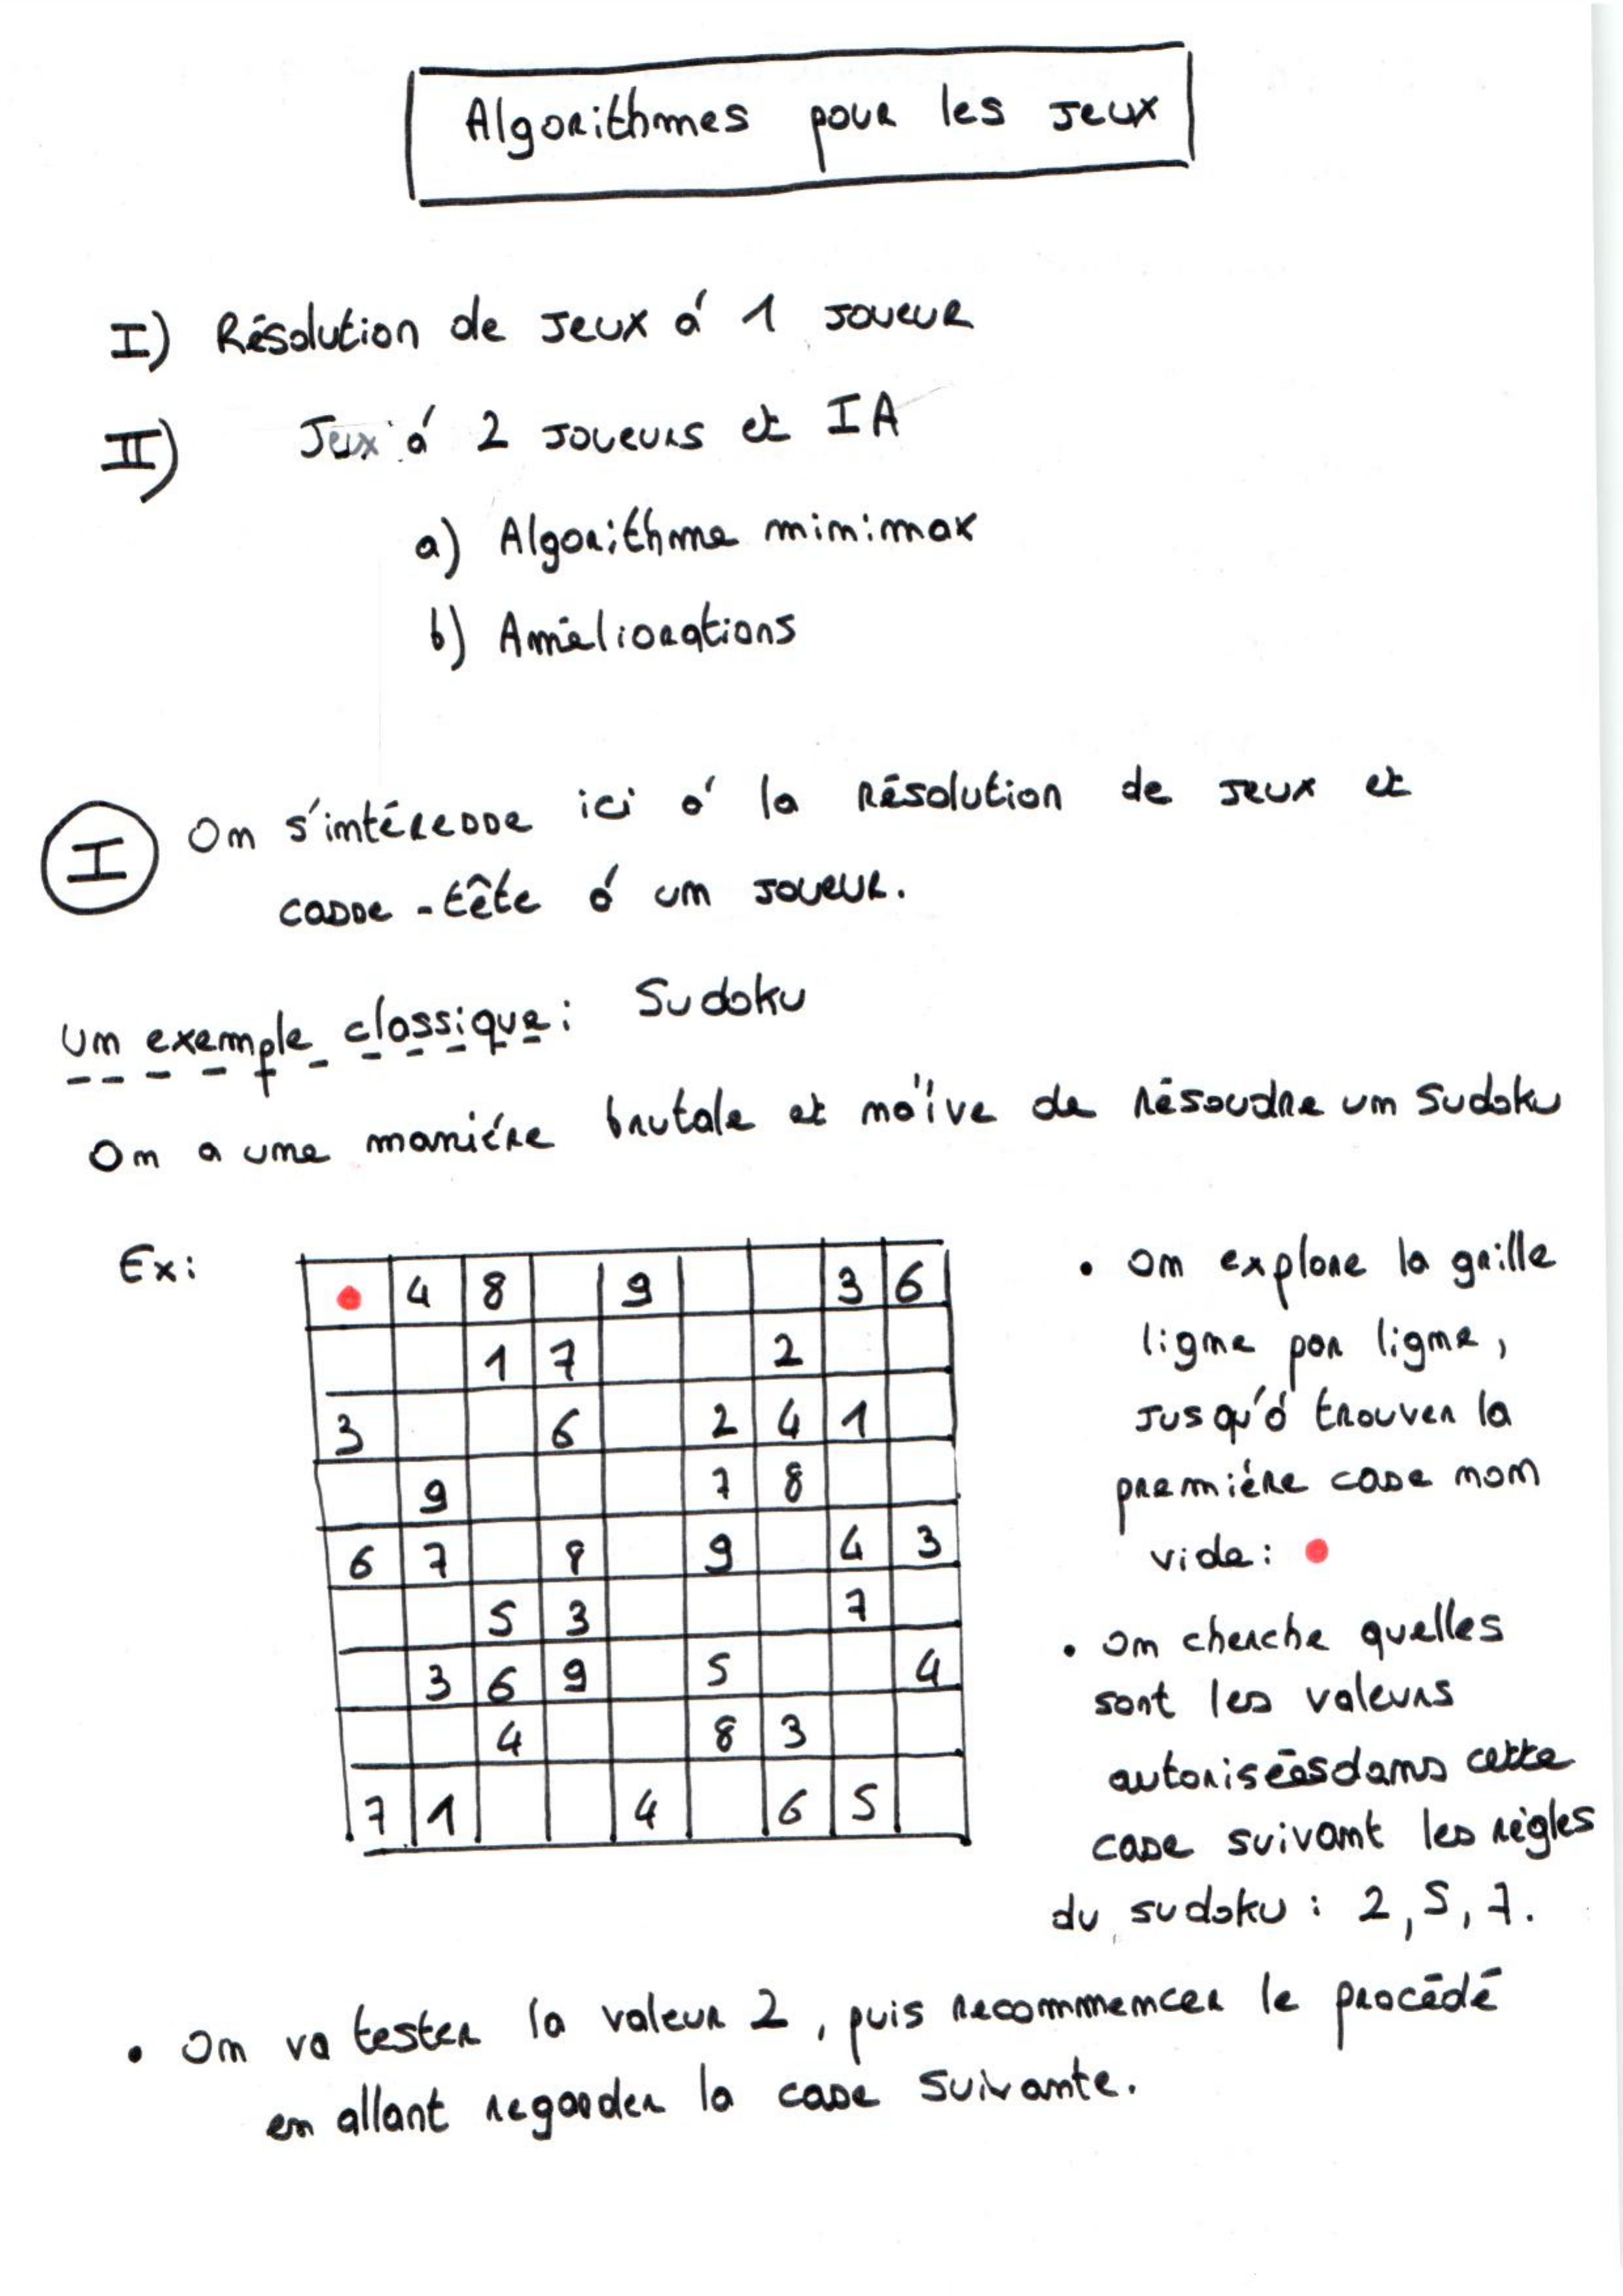 Algorithmes pour les jeux
I) Résolution de jeux à 1 joueur
II) Jeux à 2 joueurs et IA
a) Algorithme minimax
b) Améliorations
I On s'intéresse ici à la résolution de jeux et
casse-tête à un joueur.
Un exemple classique: Sudoku
On a une manière brutale et naïve de résoudre un Sudoku
Ex:
4 8 9 3 6
1 7 2
3 6 2 4 1
9 7 8
6 7 8 9 4 3
5 3 7
3 6 9 5 4
4 8 3
7 1 4 6 5
• On explore la grille
ligne par ligne,
jusqu'à trouver la
première case non
vide:
• On cherche quelles
sont les valeurs
autorisées dans cette
case suivant les règles
du sudoku: 2, 5, 7.
• On va tester la valeur 2, puis recommencer le procédé
en allant regarder la case suivante.